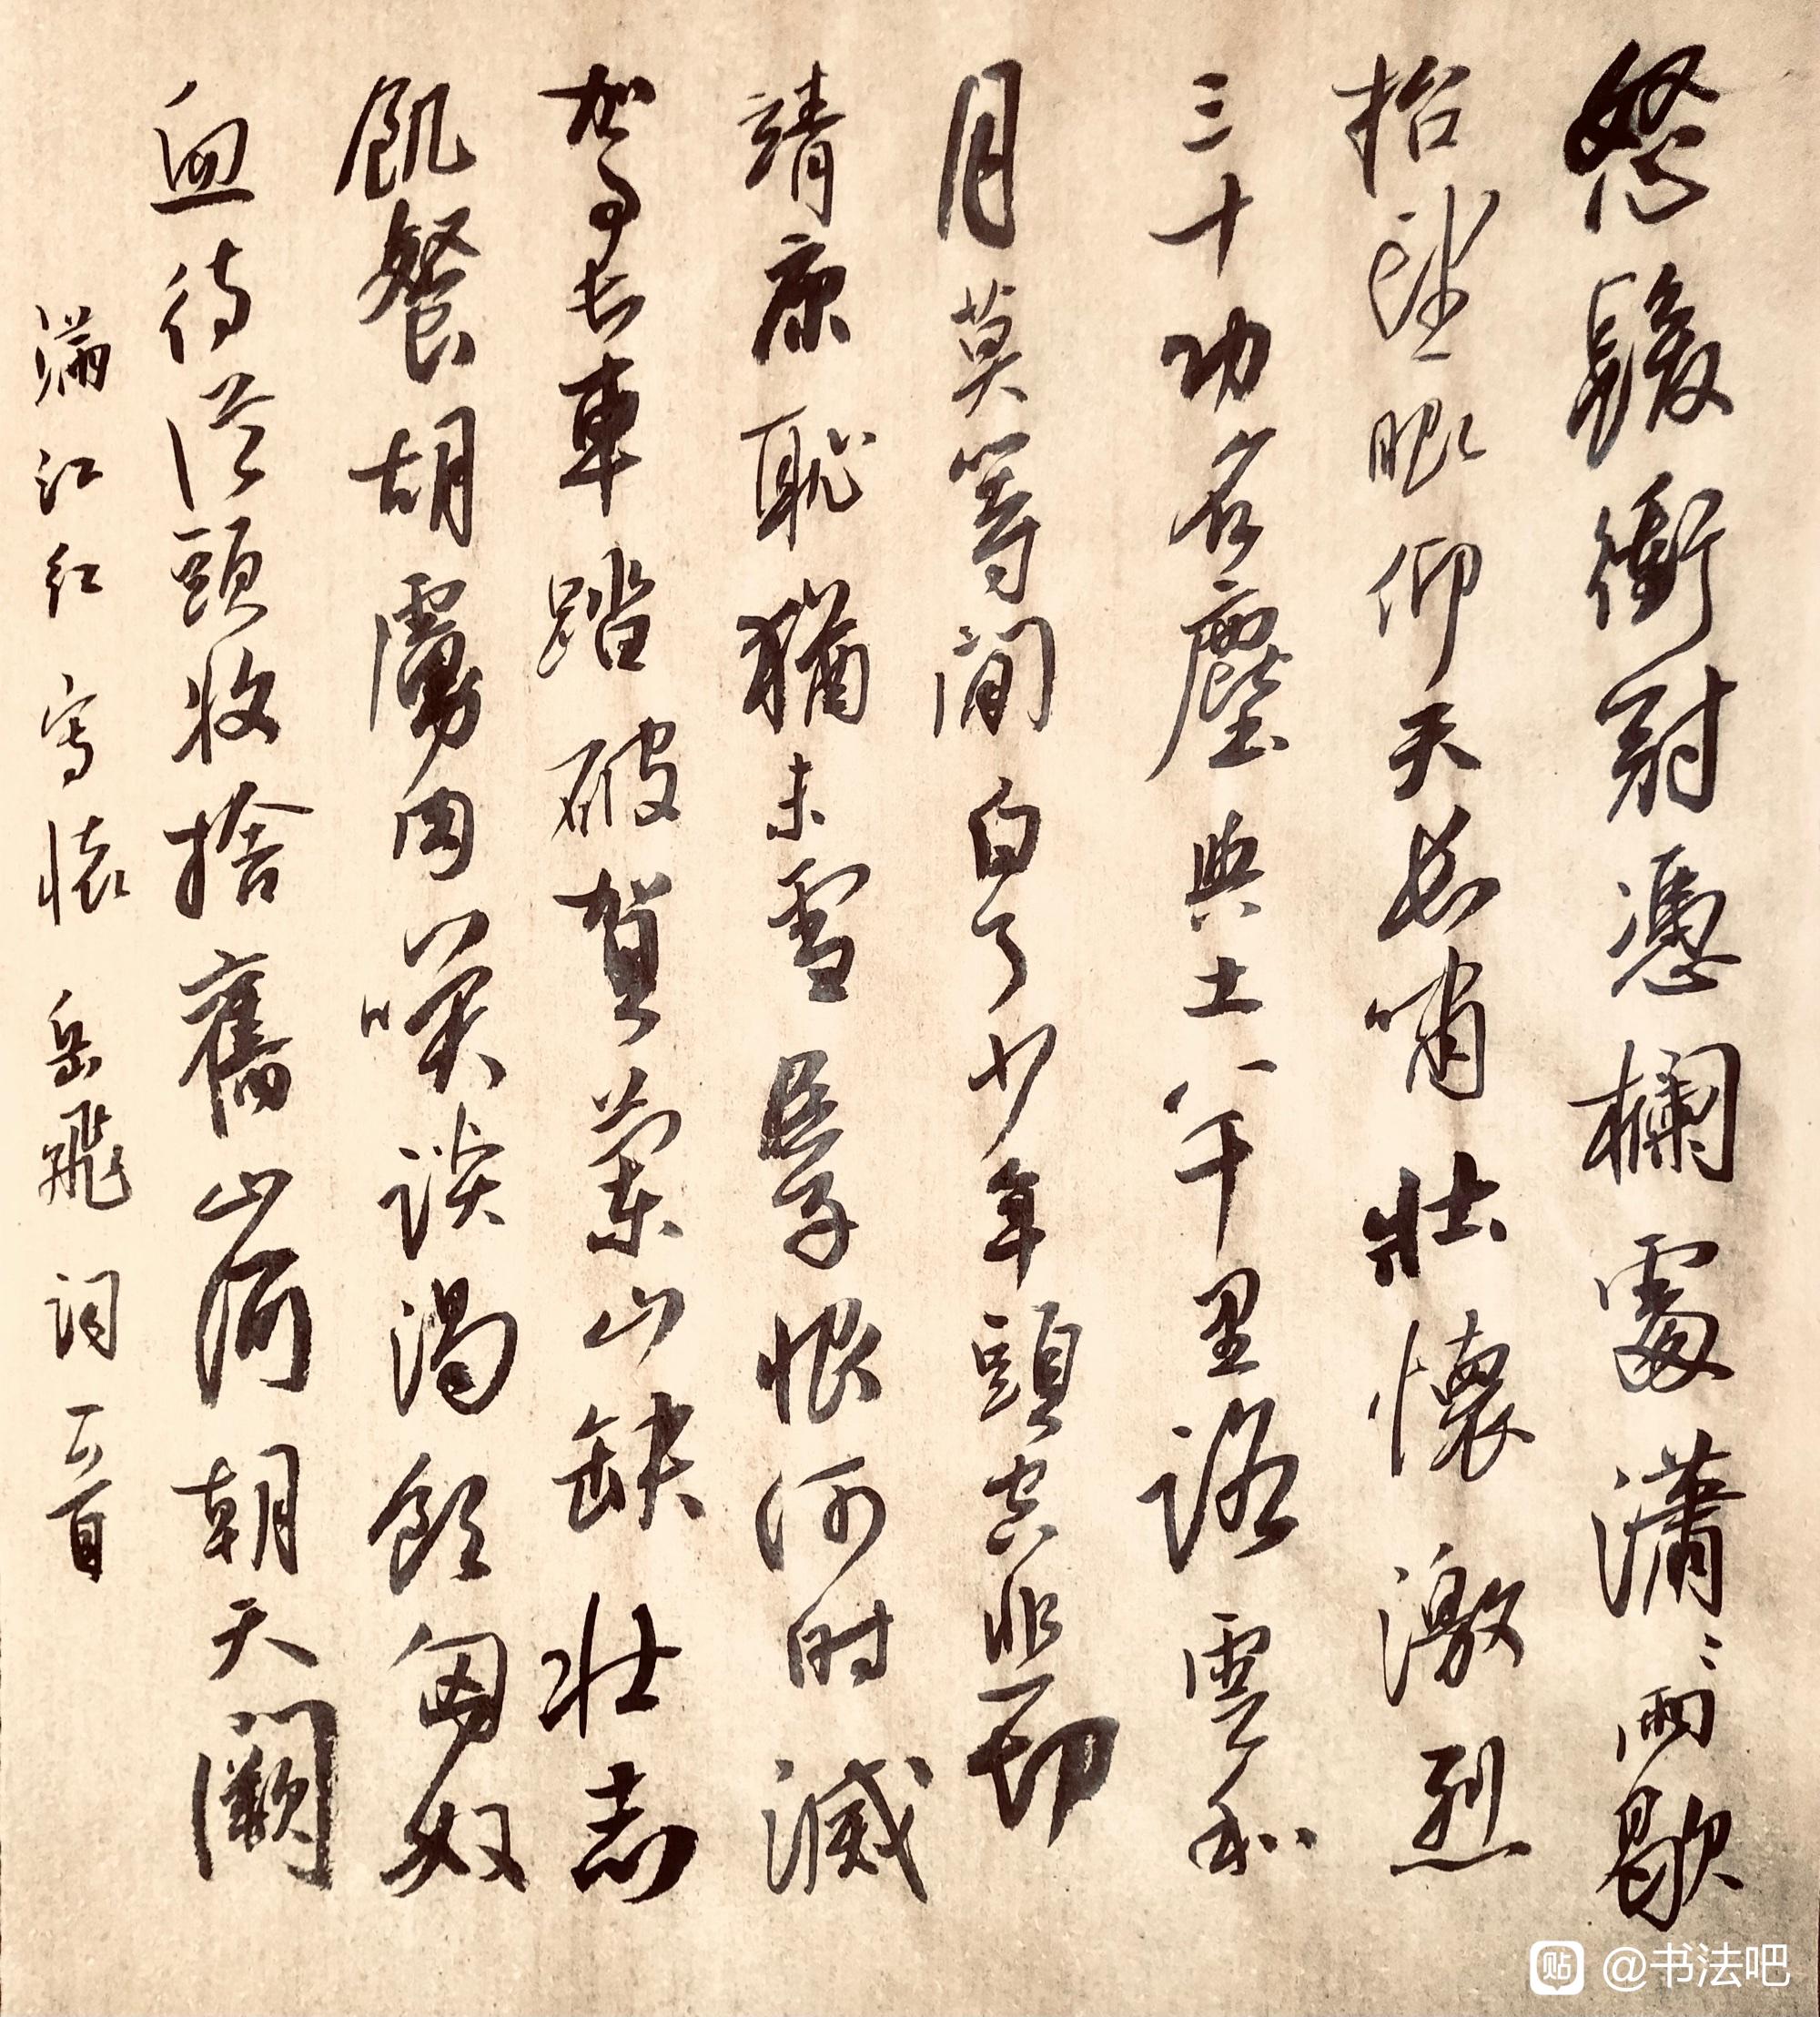 怒髮衝冠憑欄處瀟〻雨歇
抬望眼仰天長嘯壯懷激烈
三十功名塵與土八千里路雲和
月莫等閒白了少年頭空悲切
靖康恥猶未雪臣子恨何时滅
駕長車踏破賀蘭山缺壯志
飢餐胡虜肉笑談渴飲匈奴
血待從頭收捨舊山河朝天闕
滿江紅 寫懷 岳飛 詞一首
贴 @书法吧